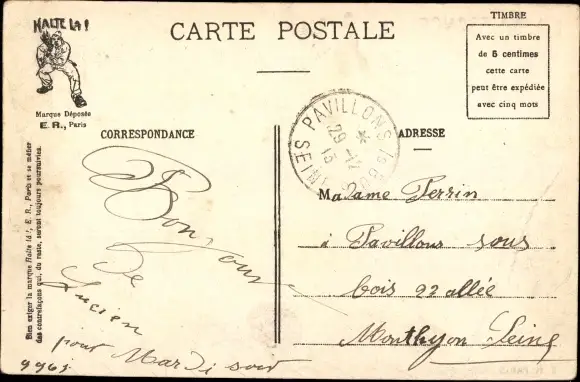 HALTE LÀ !
Marque Déposée
E. R., Paris
CARTE POSTALE
TIMBRE
Avec un timbre
de 5 centimes
cette carte
peut être expédiée
avec cinq mots
CORRESPONDANCE
ADRESSE
PAVILLONS
29-12
13
SEINE
Bien exiger la marque Halte là !, E. R., Paris et se méfier
des contrefaçons qui, du reste, seront toujours poursuivies.
Bonjour
De
Lucien
pour Mardi soir
Madame Perrin
à Pavillons sous
bois 22 allée
Monthyon Seine